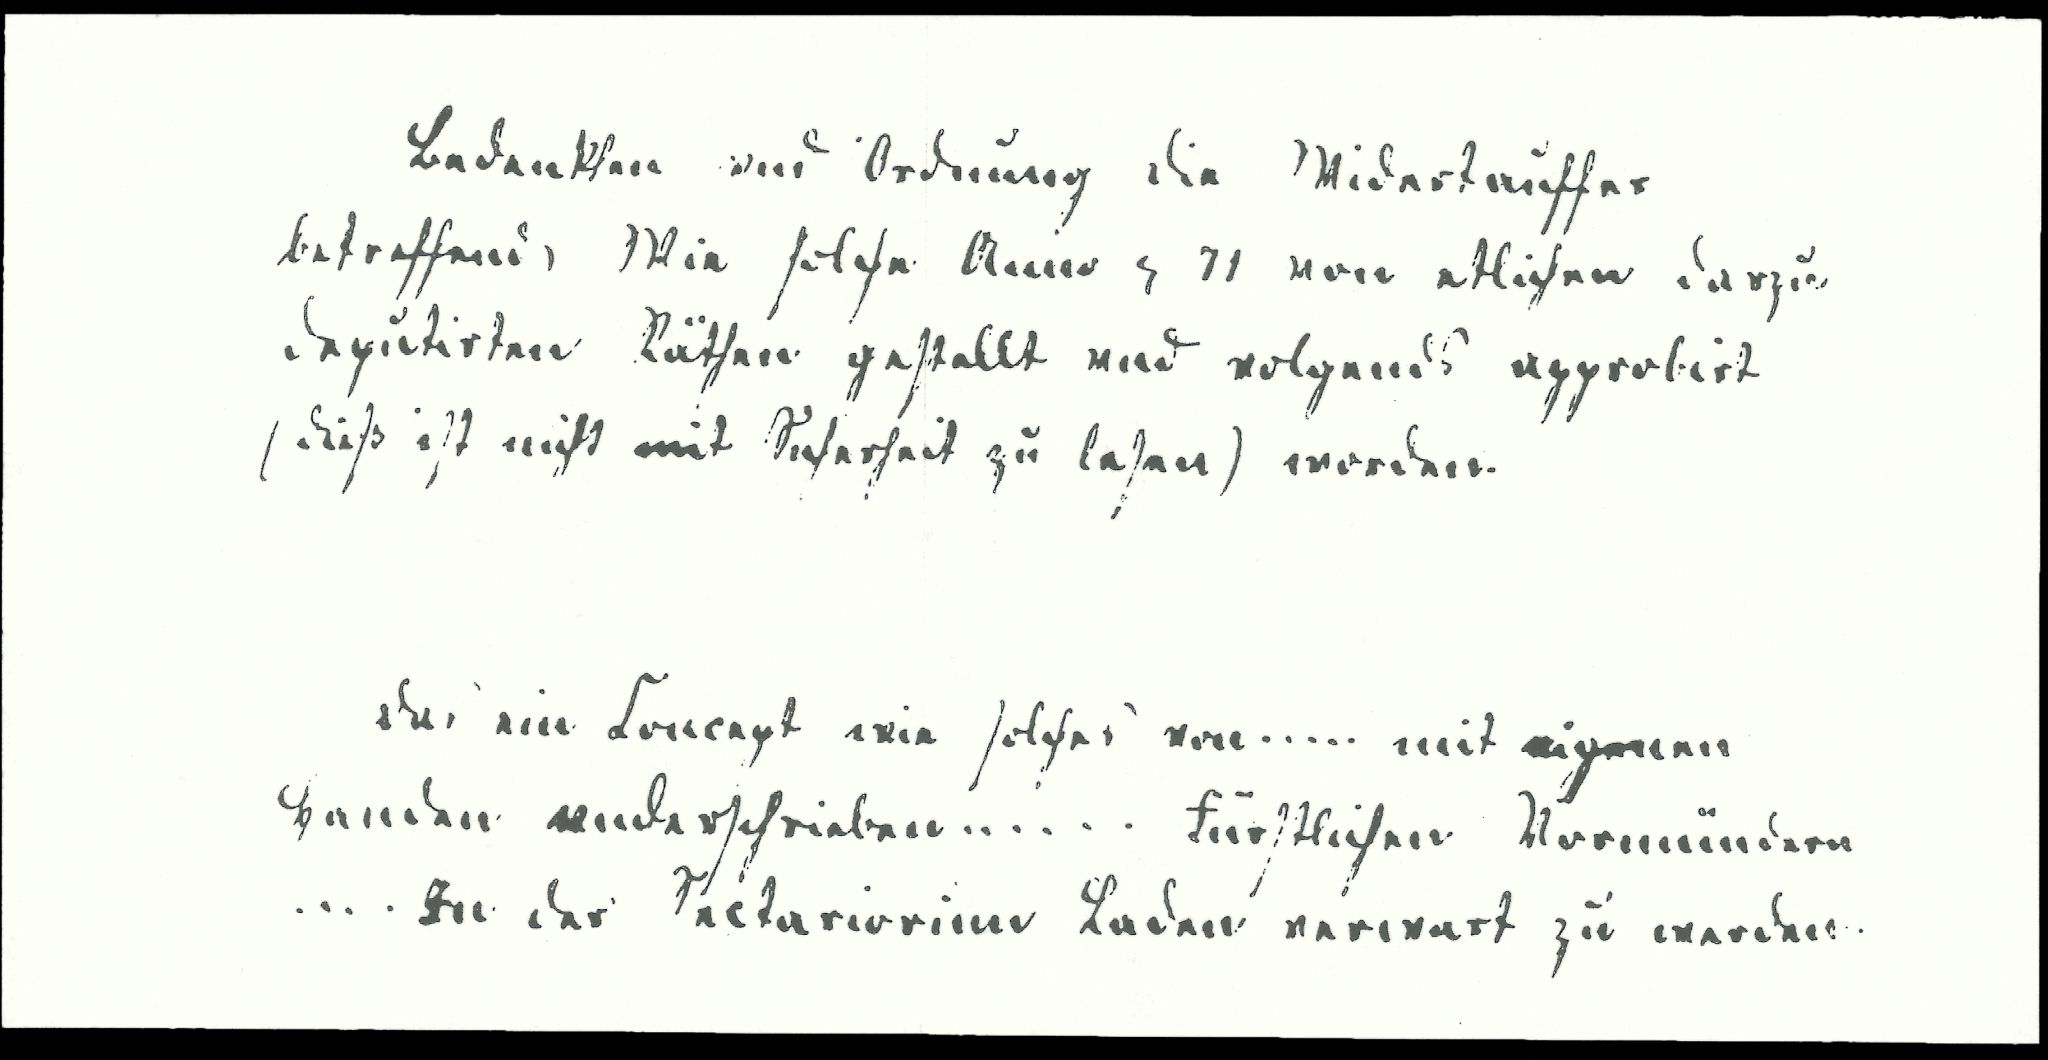 Bedenkhen vnd Ordnung die Widertauffer
betreffend, Wie solche Anno 571 von etlichen darzu
deputirten Räthen gestellt vnd volgends approbirt
(dieß ist nicht mit Sicherheit zu lesen) worden.
das ein Concept wie solches von..... mit eigenen
Handen underschrieben...... Fürstlichen Vormündern
.... In der Sectariorum Laden verwart zu werden.